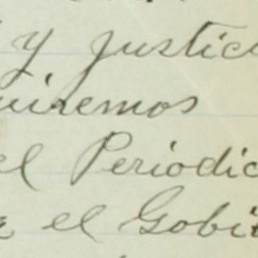 y justici
uiremos
el Periodic
el Gobi